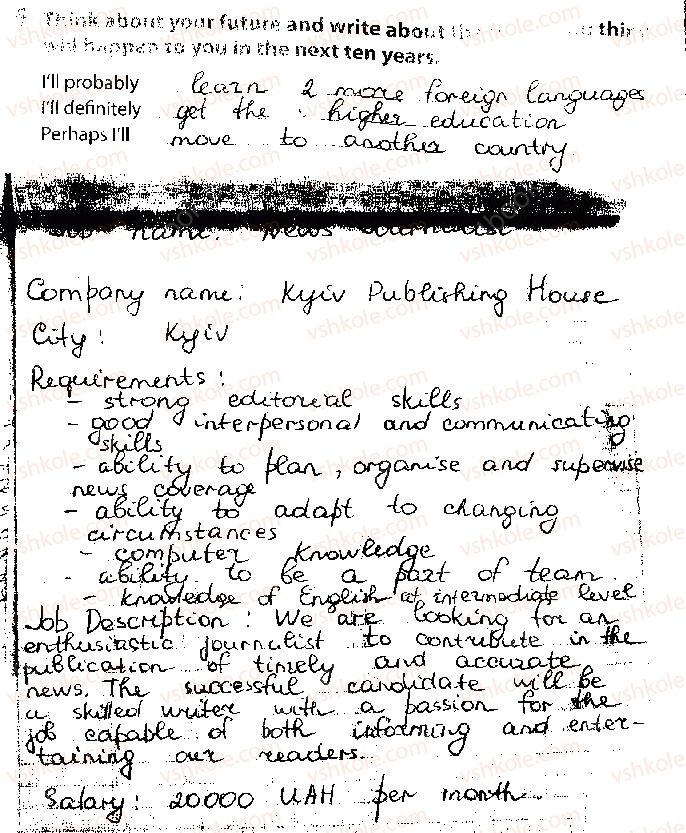 Think about your future and write about the
will happen to you in the next ten years.
I'll probably learn 2 more foreign languages
I'll definitely get the higher education
Perhaps I'll move to another country
name: News
Company name: Kyiv Publishing House
City: Kyiv
Requirements:
- strong editorial skills
- good interpersonal and communicating
skills
- ability to plan, organise and supervise
news coverage
- ability to adapt to changing
circumstances
- computer knowledge
- ability to be a part of team
- knowledge of English at intermediate level
Job Description: We are looking for an
enthusiastic journalist to contribute in the
publication of timely and accurate
news. The successful candidate will be
a skilled writer with a passion for the
job capable of both informing and enter-
taining our readers.
Salary: 20000 UAH per month